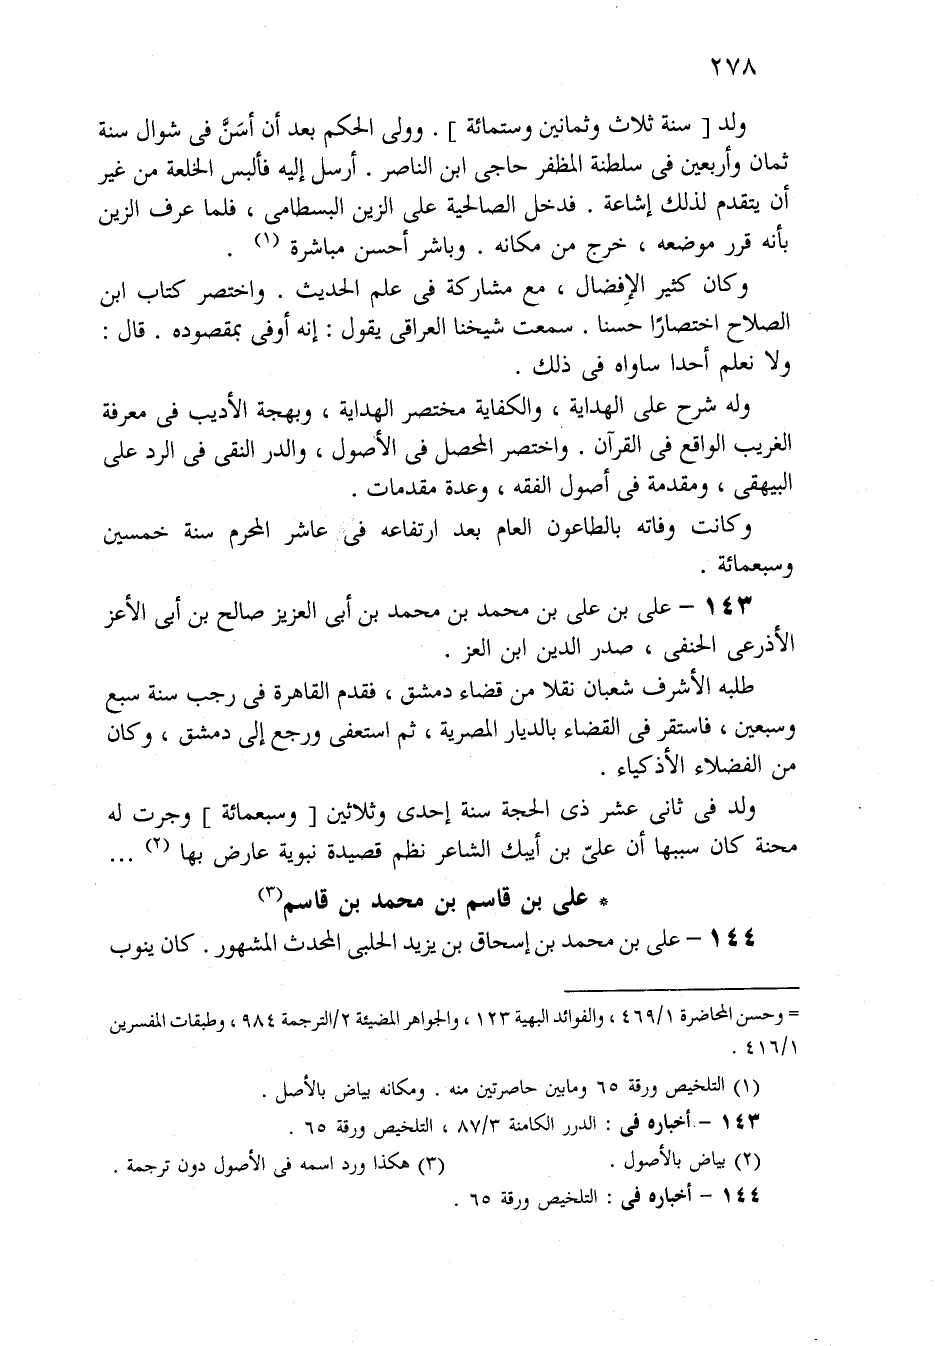 ٢٧٨
ولد [ سنة ثلاث وثمانين وستمائة ] . وولى الحكم بعد أن أسَنَّ فى شوال سنة
ثمان وأربعين فى سلطنة المظفر حاجى ابن الناصر . أرسل إليه فألبس الخلعة من غير
أن يتقدم لذلك إشاعة . فدخل الصالحية على الزين البسطامى ، فلما عرف الزين
بأنه قرر موضعه ، خرج من مكانه . وباشر أحسن مباشرة (١) .
وكان كثير الإفضال ، مع مشاركة فى علم الحديث . واختصر كتاب ابن
الصلاح اختصارًا حسنا . سمعت شيخنا العراقى يقول : إنه أوفى بمقصوده . قال :
ولا نعلم أحدا ساواه فى ذلك .
وله شرح على الهداية ، والكفاية مختصر الهداية ، وبهجة الأديب فى معرفة
الغريب الواقع فى القرآن . واختصر المحصل فى الأصول ، والدر النقى فى الرد على
البيهقى ، ومقدمة فى أصول الفقه ، وعدة مقدمات .
وكانت وفاته بالطاعون العام بعد ارتفاعه فى عاشر المحرم سنة خمسين
وسبعمائة .
١٤٣ – على بن على بن محمد بن محمد بن أبى العزيز صالح بن أبى الأعز
الأذرعى الحنفى ، صدر الدين ابن العز .
طلبه الأشرف شعبان نقلا من قضاء دمشق ، فقدم القاهرة فى رجب سنة سبع
وسبعين ، فاستقر فى القضاء بالديار المصرية ، ثم استعفى ورجع إلى دمشق ، وكان
من الفضلاء الأذكياء .
ولد فى ثانى عشر ذى الحجة سنة إحدى وثلاثين [ وسبعمائة ] وجرت له
محنة كان سببها أن علىّ بن أيبك الشاعر نظم قصيدة نبوية عارض بها (٢) ...
* على بن قاسم بن محمد بن قاسم(٣)
١٤٤ – على بن محمد بن إسحاق بن يزيد الحلبى المحدث المشهور . كان ينوب
= وحسن المحاضرة ٤٦٩/١ ، والفوائد البهية ١٢٣ ، والجواهر المضيئة ٢/الترجمة ٩٨٤ ، وطبقات المفسرين
٤١٦/١ .
(١) التلخيص ورقة ٦٥ ومابين حاصرتين منه . ومكانه بياض بالأصل .
١٤٣ – أخباره فى : الدرر الكامنة ٨٧/٣ ، التلخيص ورقة ٦٥ .
(٢) بياض بالأصول . (٣) هكذا ورد اسمه فى الأصول دون ترجمة .
١٤٤ – أخباره فى : التلخيص ورقة ٦٥ .